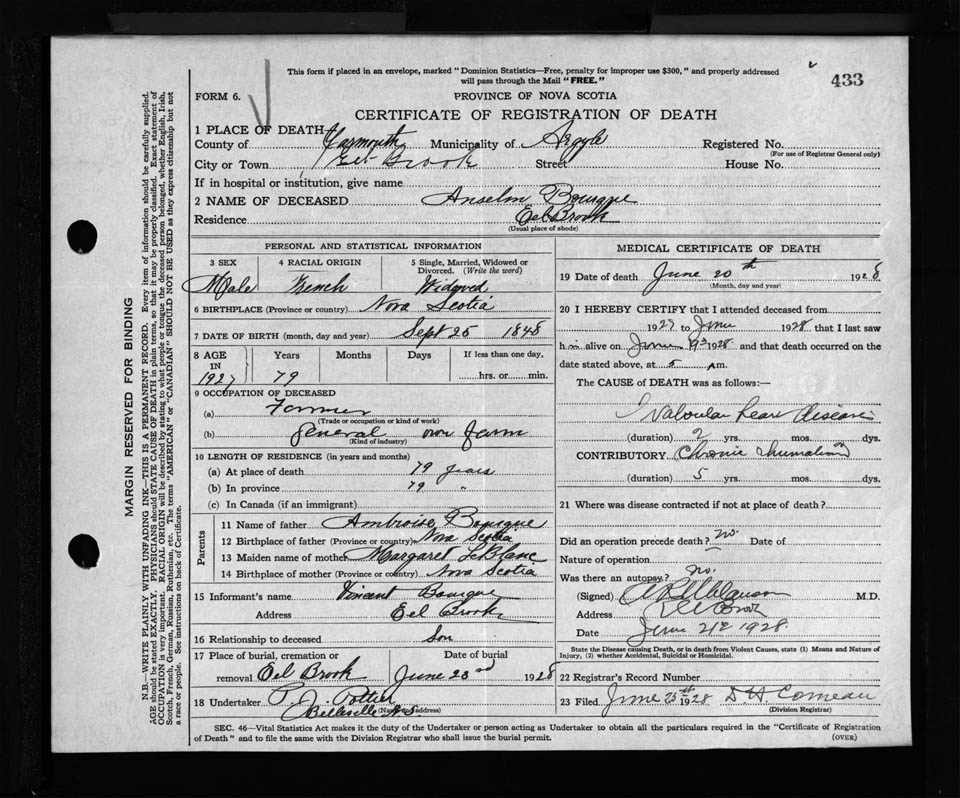 This form if placed in an envelope, marked "Dominion Statistics—Free, penalty for improper use $300," and properly addressed
will pass through the Mail "FREE."
433
FORM 6.
PROVINCE OF NOVA SCOTIA
CERTIFICATE OF REGISTRATION OF DEATH
1 PLACE OF DEATH
County of Yarmouth Municipality of Argyle Registered No.
(For use of Registrar General only)
City or Town Eel Brook Street House No.
If in hospital or institution, give name
2 NAME OF DECEASED Anselm Bourque
Residence Eel Brook
(Usual place of abode)
PERSONAL AND STATISTICAL INFORMATION
3 SEX 4 RACIAL ORIGIN 5 Single, Married, Widowed or Divorced. (Write the word)
Male French Widowed
6 BIRTHPLACE (Province or country) Nova Scotia
7 DATE OF BIRTH (month, day and year) Sept 25 1848
8 AGE IN Years Months Days If less than one day,
1927 79 hrs. or min.
9 OCCUPATION OF DECEASED
(a) Farmer
(Trade or occupation or kind of work)
(b) General own farm
(Kind of industry)
10 LENGTH OF RESIDENCE (in years and months)
(a) At place of death 79 years
(b) In province 79 "
(c) In Canada (if an immigrant)
Parents
11 Name of father Ambroise Bourque
12 Birthplace of father (Province or country) Nova Scotia
13 Maiden name of mother Margaret LeBlanc
14 Birthplace of mother (Province or country) Nova Scotia
15 Informant's name Vincent Bourque
Address Eel Brook
16 Relationship to deceased Son
17 Place of burial, cremation or removal Eel Brook Date of burial June 23rd 1928
18 Undertaker P. A. Pottier
(Name and address) Belleville N.S
MEDICAL CERTIFICATE OF DEATH
19 Date of death June 20th 1928
(Month, day and year)
20 I HEREBY CERTIFY that I attended deceased from
1927 to June 1928 that I last saw
him alive on June 19 1928 and that death occurred on the
date stated above, at 5 A m.
The CAUSE of DEATH was as follows:
Valvular heart disease
(duration) 2 yrs. mos. dys.
CONTRIBUTORY Chronic rheumatism
(duration) 5 yrs. mos. dys.
21 Where was disease contracted if not at place of death?
Did an operation precede death? no. Date of
Nature of operation
Was there an autopsy? no.
(Signed) M.D.
Address Eel Brook
Date June 21st 1928.
State the Disease causing Death, or in death from Violent Causes, state (1) Means and Nature of
Injury, (2) whether Accidental, Suicidal or Homicidal.
22 Registrar's Record Number
23 Filed June 25th 1928 D H Comeau
(Division Registrar)
SEC. 46—Vital Statistics Act makes it the duty of the Undertaker or person acting as Undertaker to obtain all the particulars required in the "Certificate of Registration
of Death" and to file the same with the Division Registrar who shall issue the burial permit.
(OVER)
MARGIN RESERVED FOR BINDING
N.B.—WRITE PLAINLY WITH UNFADING INK—THIS IS A PERMANENT RECORD. Every item of information should be carefully supplied.
AGE should be stated EXACTLY. PHYSICIANS should STATE CAUSE OF DEATH in plain terms, so that it may be properly classified. Exact statement of
OCCUPATION is very important. RACIAL ORIGIN will be described by stating to what people or tongue the deceased person belonged, whether English, Irish,
Scotch, French, German, Russian, Ruthenian, etc. The terms "AMERICAN" or "CANADIAN" SHOULD NOT BE USED as they express citizenship but not
a race or people. See instructions on back of Certificate.